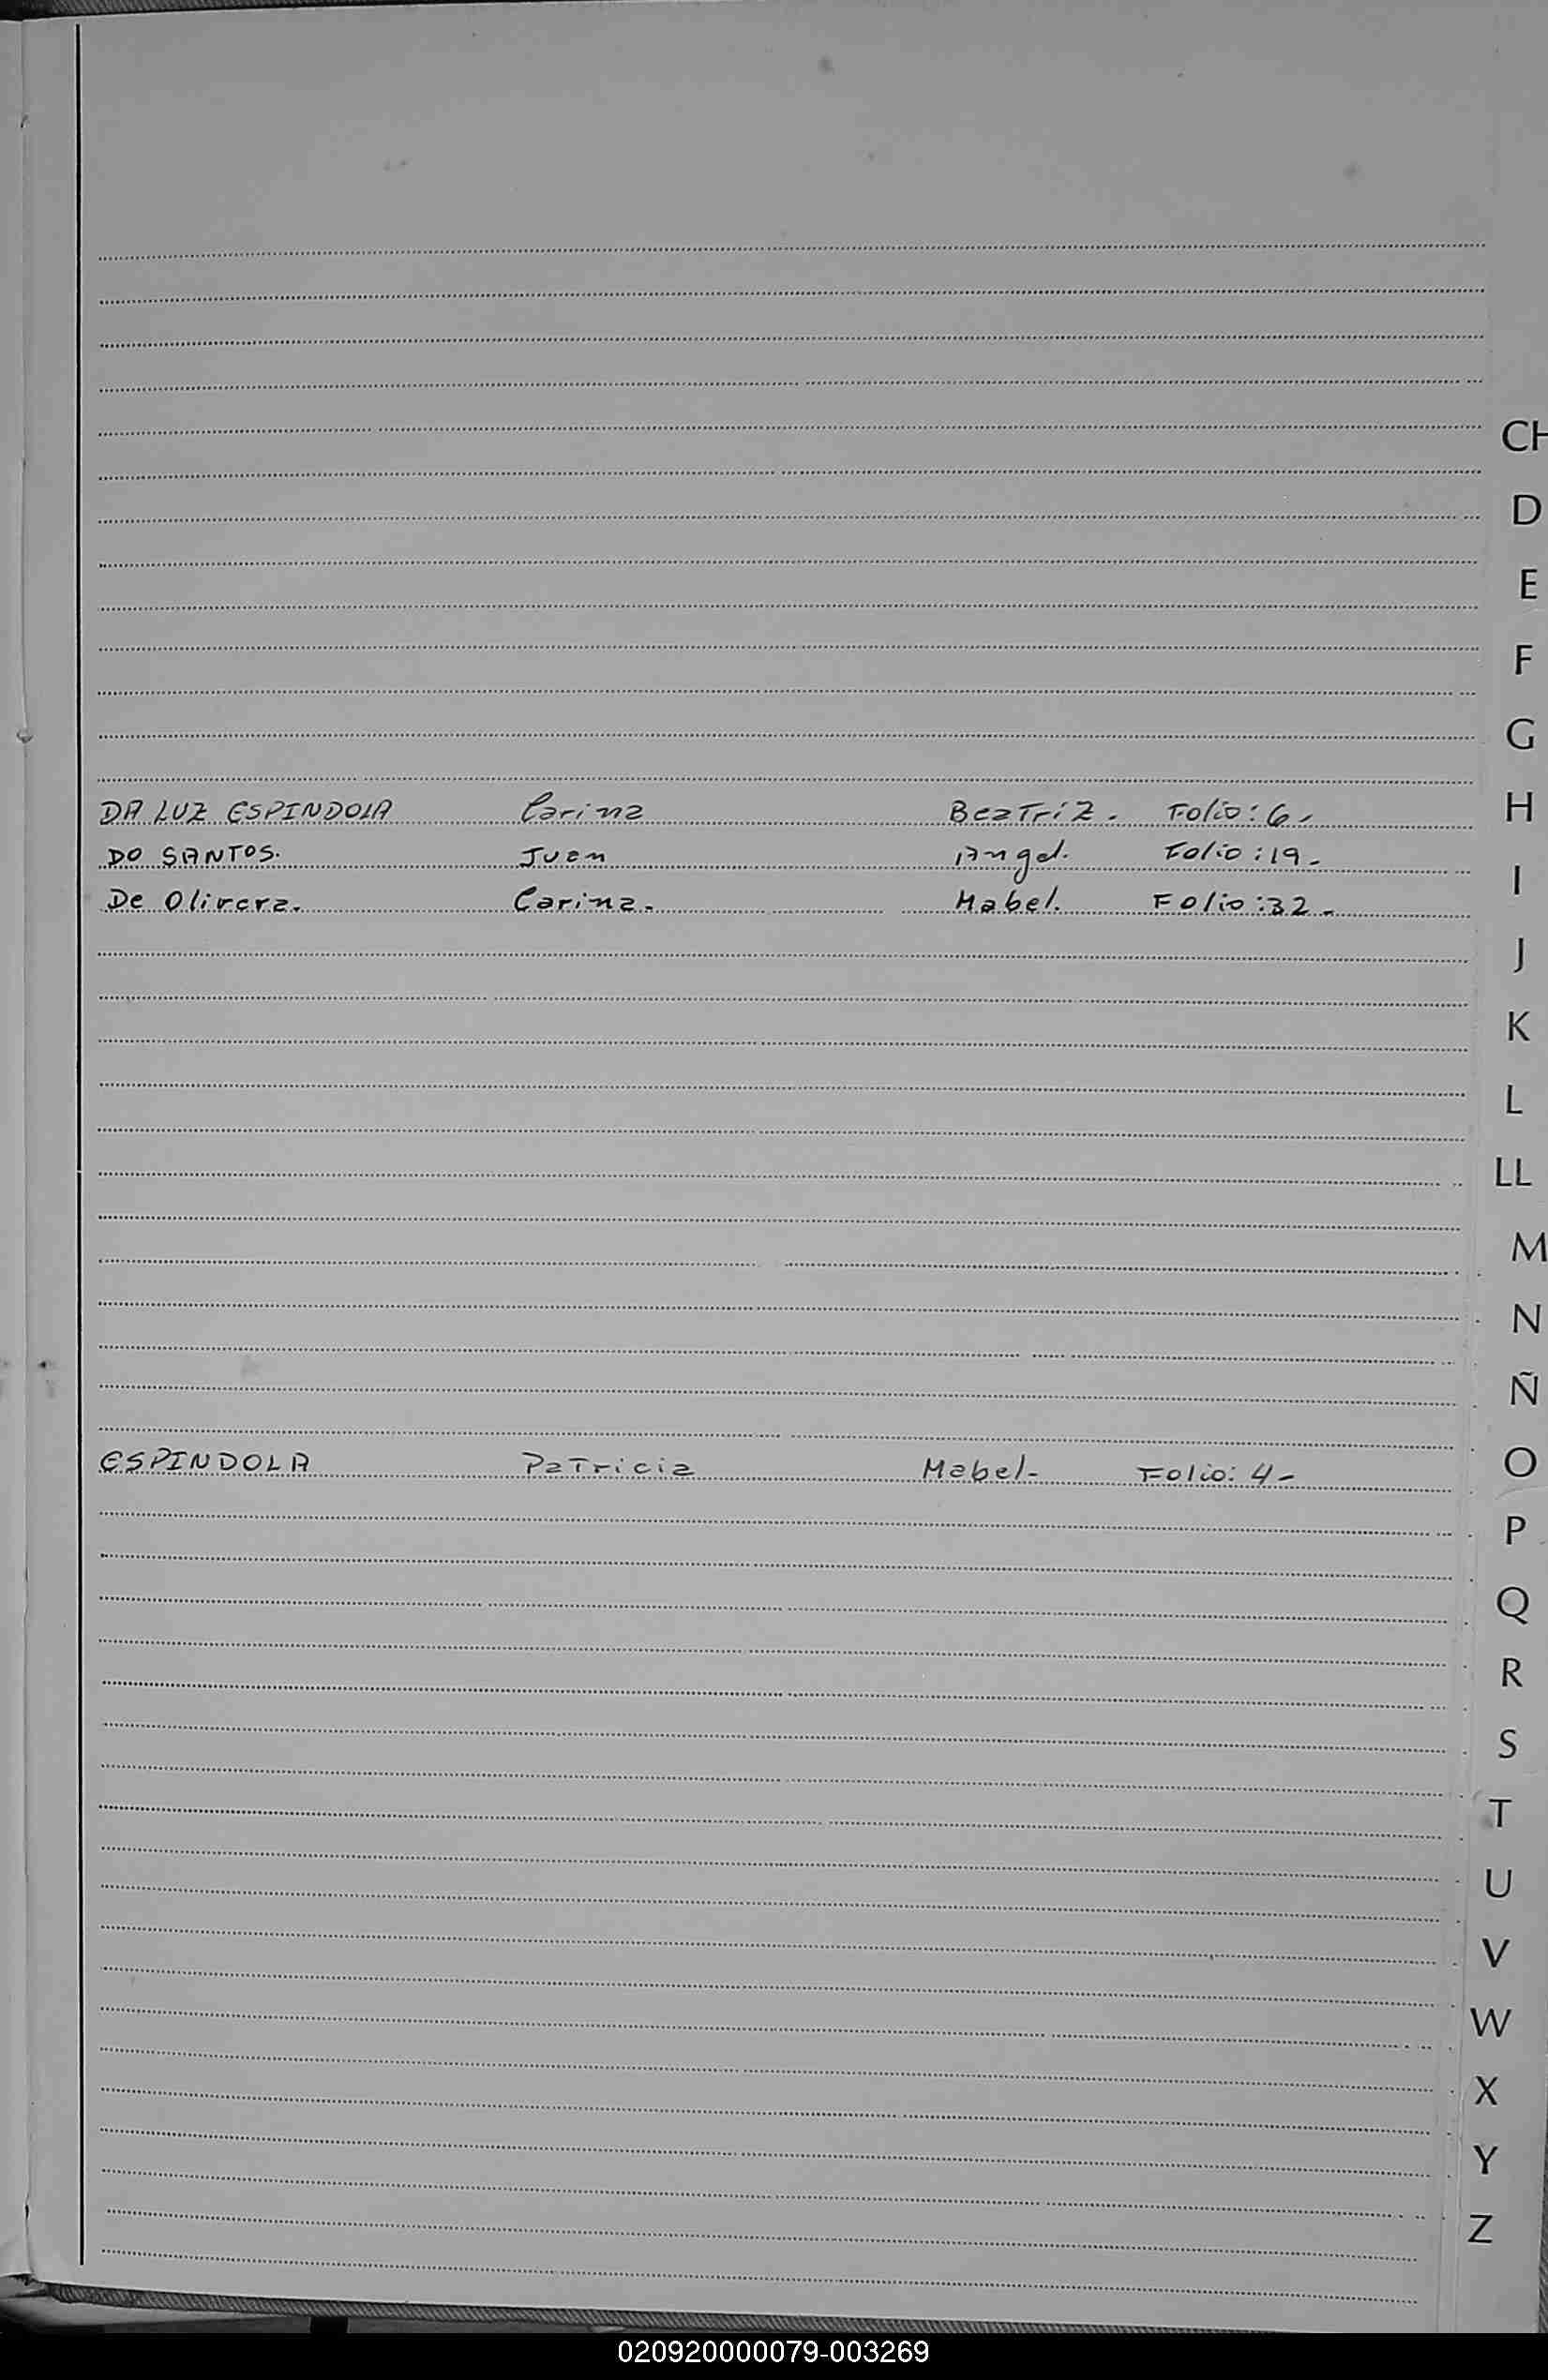 CH
D
E
F
G
H
DA LUZ ESPINDOLA Carina Beatriz. Folio: 6-
DO SANTOS. Juan Angel. Folio: 19-
I
De Olivera. Carina. Mabel. Folio: 32-
J
K
L
LL
M
N
Ñ
O
ESPINDOLA Patricia Mabel- Folio: 4-
P
Q
R
S
T
U
V
W
X
Y
Z
020920000079-003269